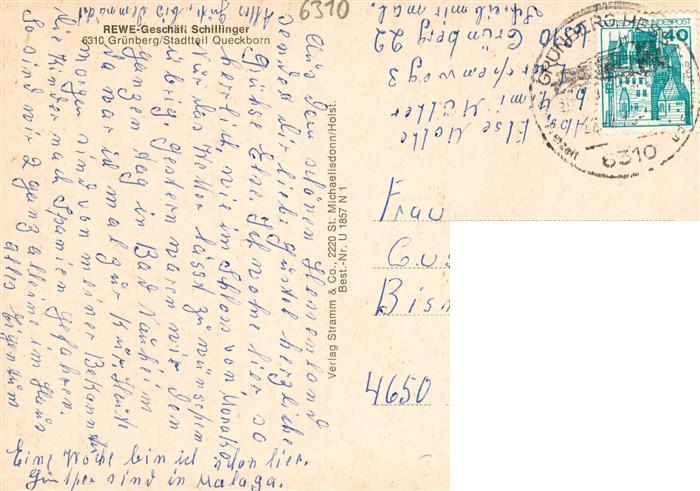 6310
REWE-Geschäft Schillinger
6310 Grünberg/Stadtteil Queckborn
Aus dem schönen Hessenland
sendet dir liebe Gustel herzliche
Grüsse Else. Ich wohne hier so
herrlich, wie im Schloss von Monako
nur das Wetter lässt zu wünschen
übrig gestern waren wir den
ganzen Tag in Bad Nauheim
da war ich mal zur Kur Heute
morgen sind von meiner Bekannten
die Kinder nach Spanien gefahren.
So sind wir 2 ganz alleine im Haus
alles Eigentum
Eine Woche bin ich schon hier.
sind in Malaga.
Alles Gute, bis demnächst
Verlag Stramm & Co., 2220 St. Michaelisdonn/Holst.
Best.-Nr. U 1857 N 1
Abs. Else Nolte
b. Mimi Müller
weg 3
6310 Grünberg 22
Schreib mir mal.
DEUTSCHE BUNDESPOST
40
GRÜNBERG, HESS
6310
Frau
Gus
Bis
4650